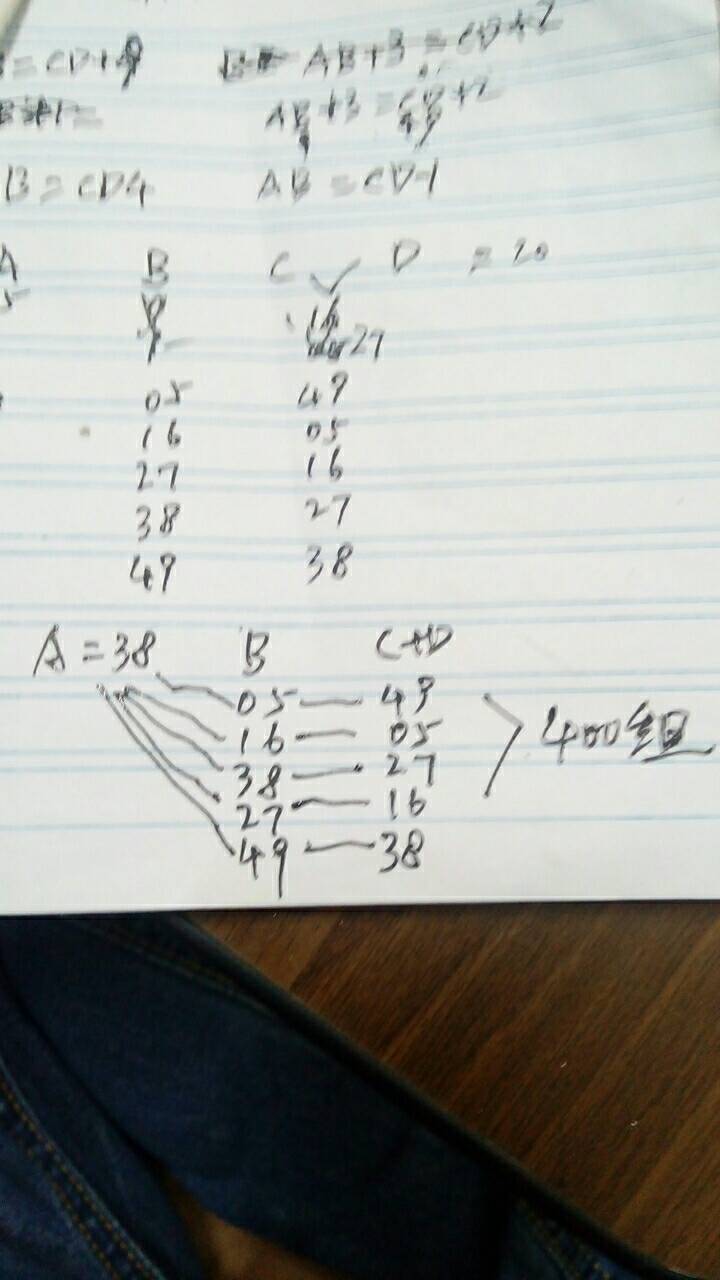 =CD+9 AB+3=CD+2
AB+3=CD+2
B=CD4 AB=CD-1
A B C D =20
5 16
27
05 49
16 05
27 16
38 27
49 38
A=38 B C+D
05 49
16 05
38 27 400组
27 16
49 38